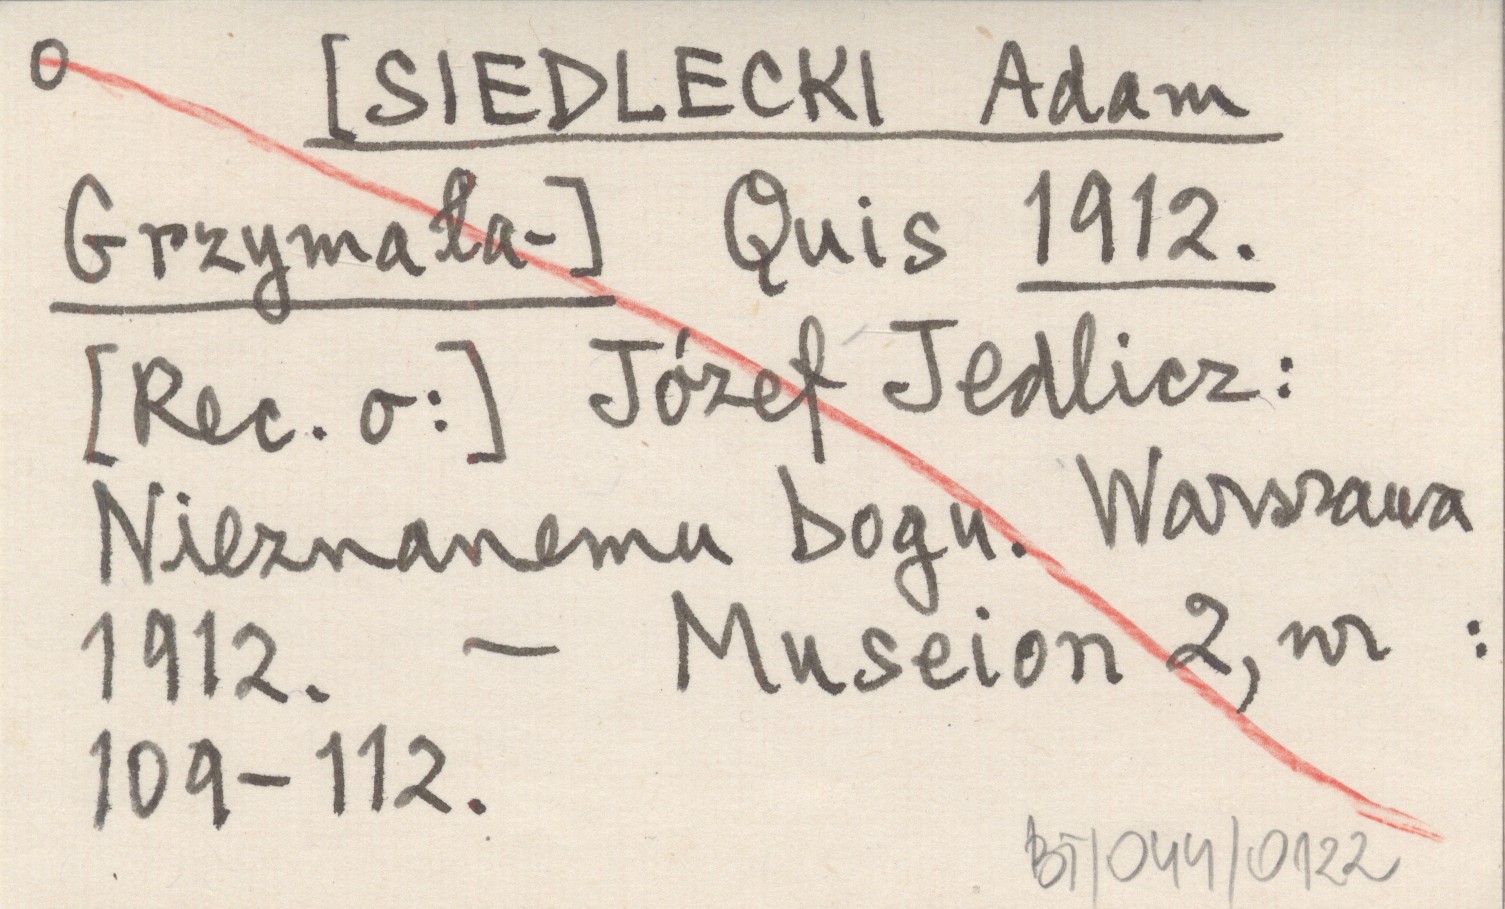 o [SIEDLECKI Adam
Grzymała-] Quis 1912.
[Rec. o:] Józef Jedlicz:
Nieznanemu bogu. Warszawa
1912. — Museion 2, nr :
109-112.
BT/044/0122